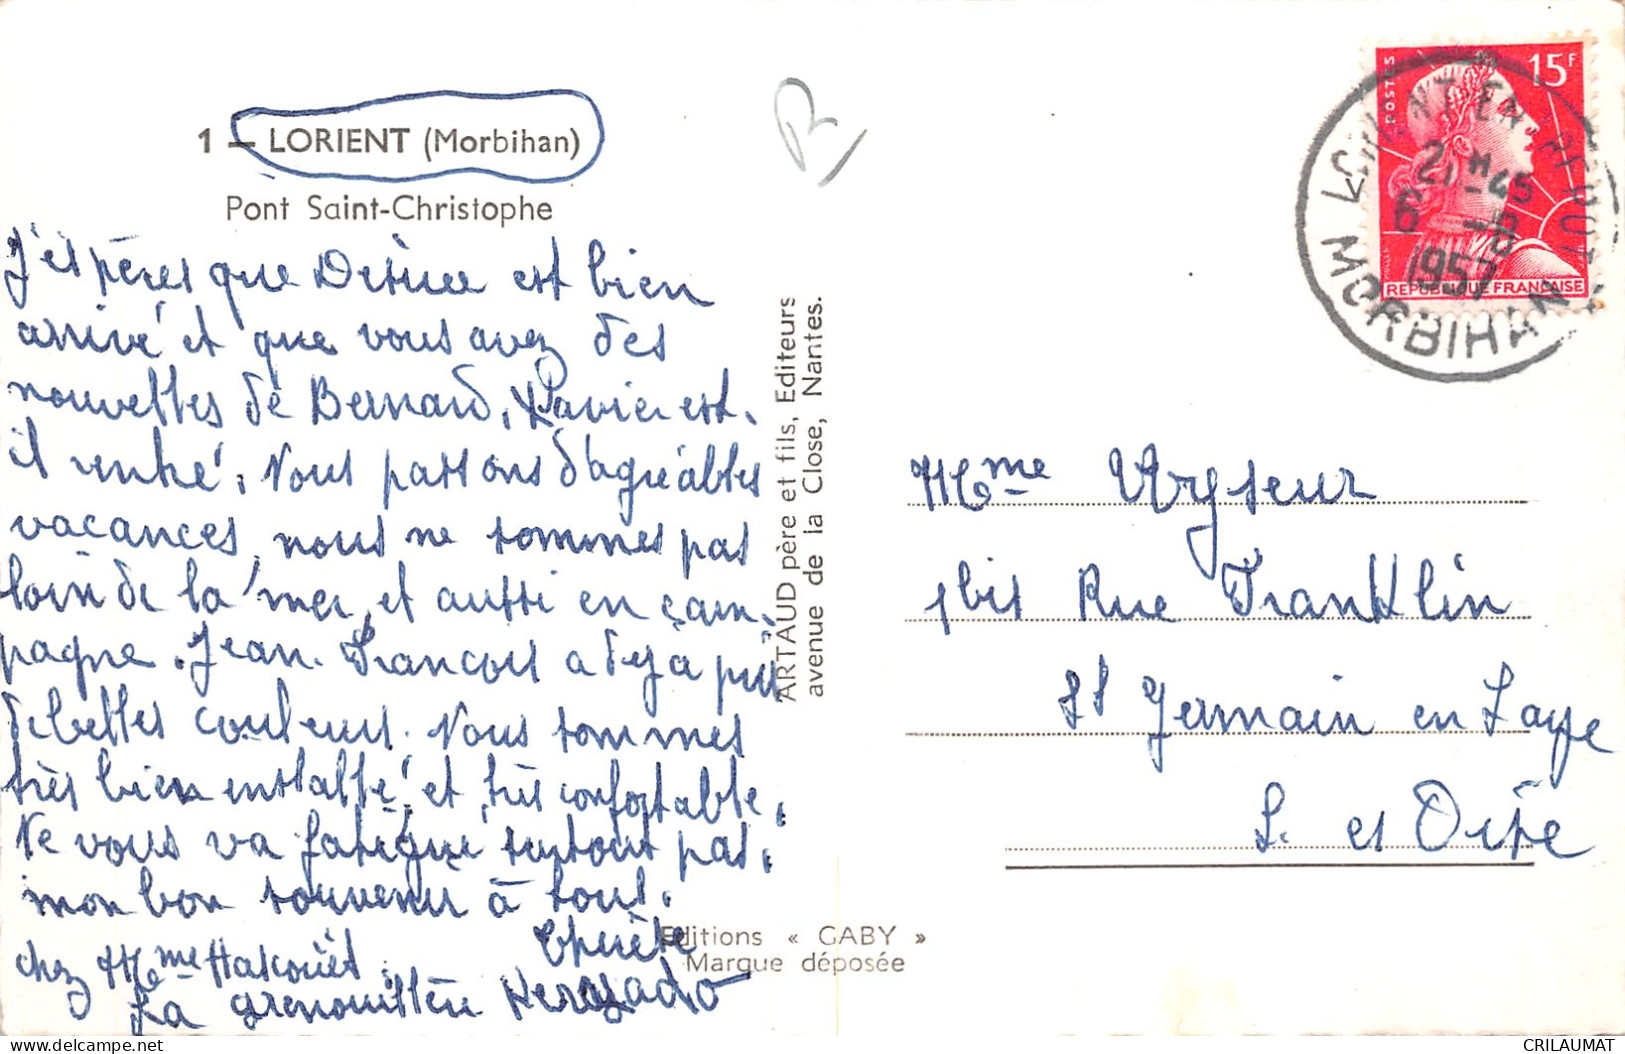 1 – LORIENT (Morbihan)
Pont Saint-Christophe
J'espères que Désirée est bien
arrivé et que vous avez des
nouvelles de Bernard, Xavier est-
il rentré, Nous passons d'agréables
vacances, nous ne sommes pas
loin de la mer, et aussi en cam-
pagne. Jean-Francois a déjà pris
de belles couleurs. Nous sommes
très bien installé et très confortable,
Ne vous va fatigué surtout pas,
mon bon souvenir à tous.
chez Mme Hascouët
La Grenouillère
ARTAUD père et fils, Editeurs
avenue de la Close, Nantes.
Editions « GABY »
Marque déposée
POSTES
15F
REPUBLIQUE FRANÇAISE
LORIENT ENTREPOT
21H45
6 -8
1957
MORBIHAN
Mme
1bis Rue Franklin
St Germain en Laye
S. et Oise
CRILAUMAT